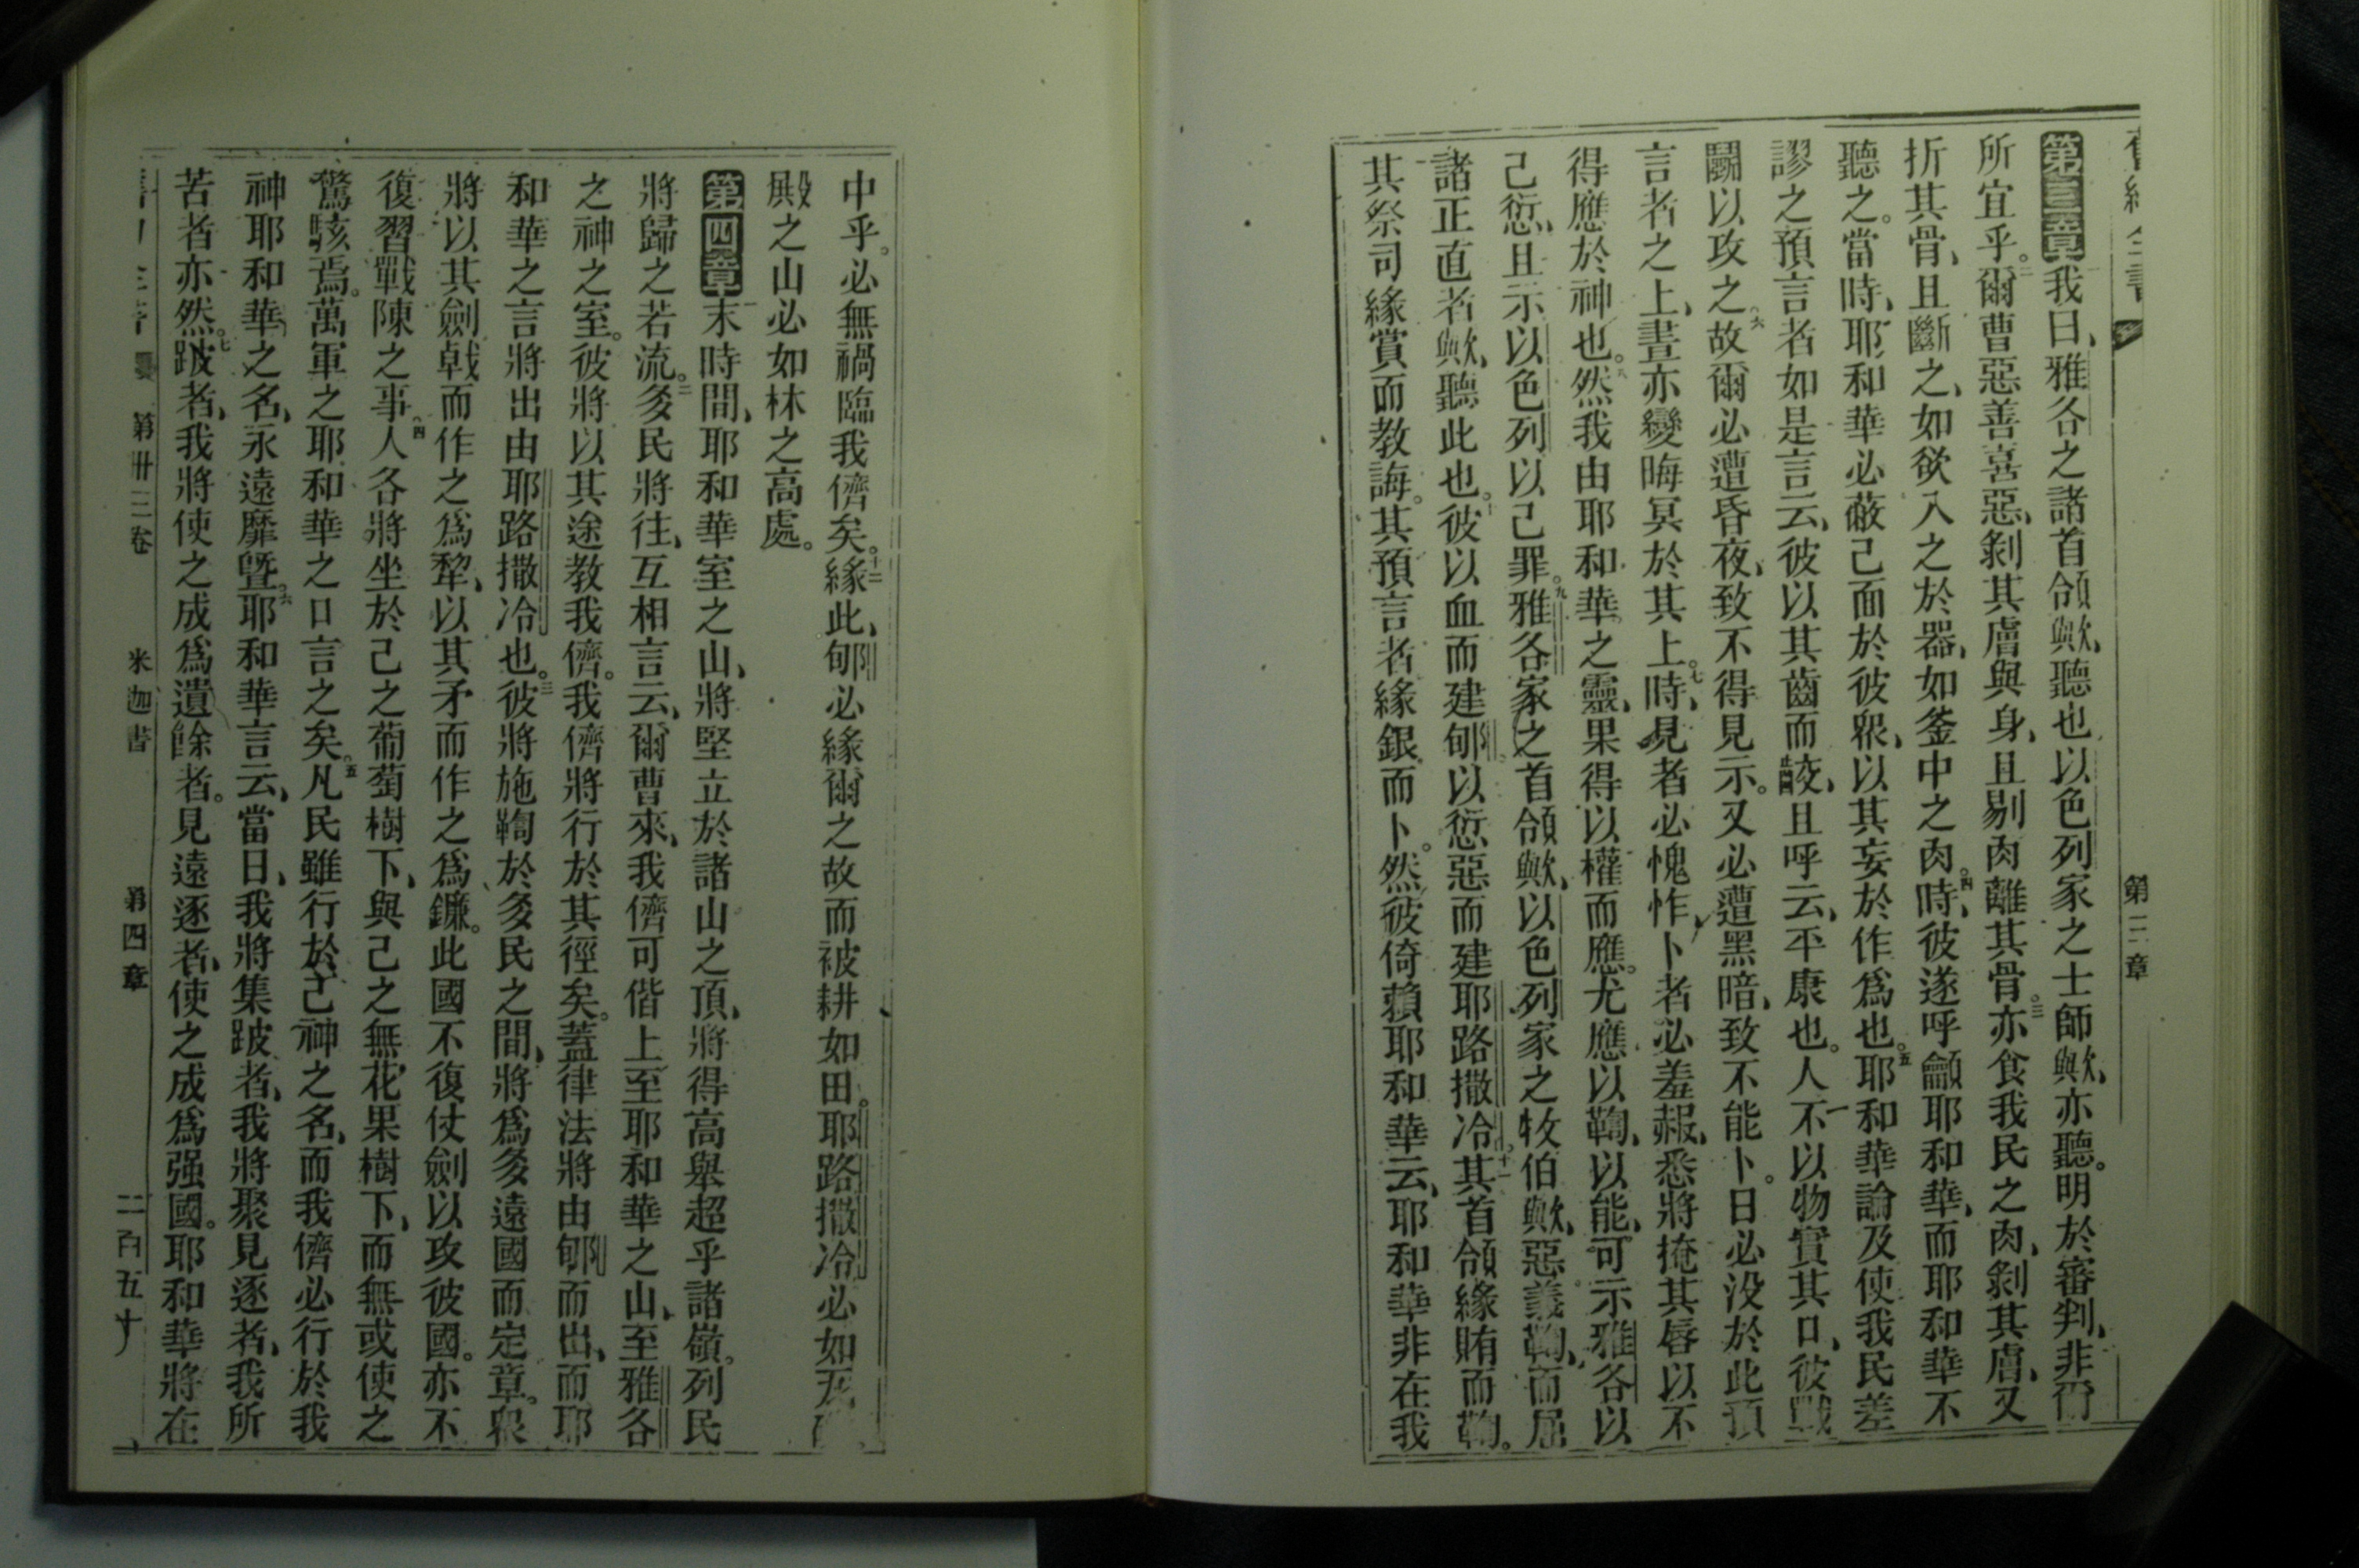 舊約全書 第三章
第三章我曰、雅各之諸首領歟、聽也、以色列家之士師歟、亦聽。明於審判、非爾
所宜乎。二爾曹惡善喜惡、剝其膚與身、且剔肉離其骨。三亦食我民之肉、剝其膚、又
折其骨、且斷之、如欲入之於器、如釜中之肉。四時、彼遂呼龥耶和華、而耶和華不
聽之。當時、耶和華必蔽己面於彼眾、以其妄於作為也。五耶和華論及使我民差
謬之預言者如是言云、彼以其齒而齩、且呼云、平康也。人不以物實其口、彼戰
鬭以攻之。六故爾必遭昏夜、致不得見示。又必遭黑暗、致不能卜。日必没於此預
言者之上、晝亦變晦冥於其上。七時、見者必愧怍、卜者必羞赧、悉將掩其唇以不
得應於神也。八然我由耶和華之靈、果得以權而應。尤應以鞫、以能、可示雅各以
己愆、且示以色列以己罪。九雅各家之首領歟、以色列家之牧伯歟、惡義鞫、而屈
諸正直者歟、聽此也。十彼以血而建郇、以愆惡而建耶路撒冷。十一其首領緣賄而鞫。
其祭司緣賞而教誨。其預言者緣銀而卜。然彼倚賴耶和華云、耶和華非在我
中乎。必無禍臨我儕矣。十二緣此、郇必緣爾之故而被耕如田。耶路撒冷必如瓦
殿之山必如林之高處。
第四章末時間、耶和華室之山、將堅立於諸山之頂、將得高舉超乎諸嶺。列民
將歸之若流。二多民將往、互相言云、爾曹來、我儕可偕上至耶和華之山、至雅各
之神之室。彼將以其途教我儕。我儕將行於其徑矣。蓋律法將由郇而出、而耶
和華之言將出由耶路撒冷也。三彼將施鞫於多民之間、將為多遠國而定章。眾
將以其劍戟而作之為犂、以其矛而作之為鐮。此國不復仗劍以攻彼國。亦不
復習戰陳之事。四人各將坐於己之葡萄樹下、與己之無花果樹下、而無或使之
驚駭焉。萬軍之耶和華之口言之矣。五凡民雖行於己神之名、而我儕必行於我
神耶和華之名、永遠靡曁。六耶和華言云、當日、我將集跛者、我將聚見逐者、我所
苦者亦然。七跛者、我將使之成為遺餘者。見遠逐者、使之成為强國。耶和華將在
第卅三卷 米迦書 第四章 二百五十